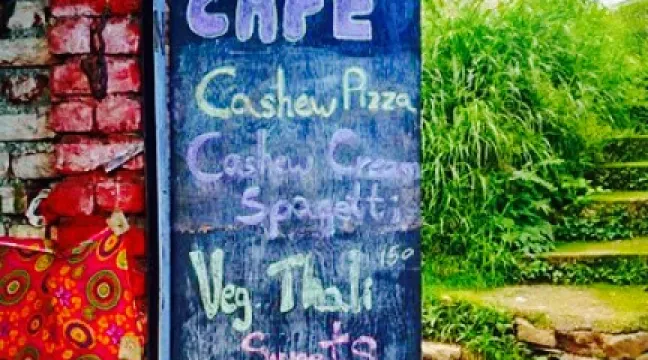 CAFE
Cashew Pizza
Cashew Cream
Spagetti
Veg. Thali 150
Sweets